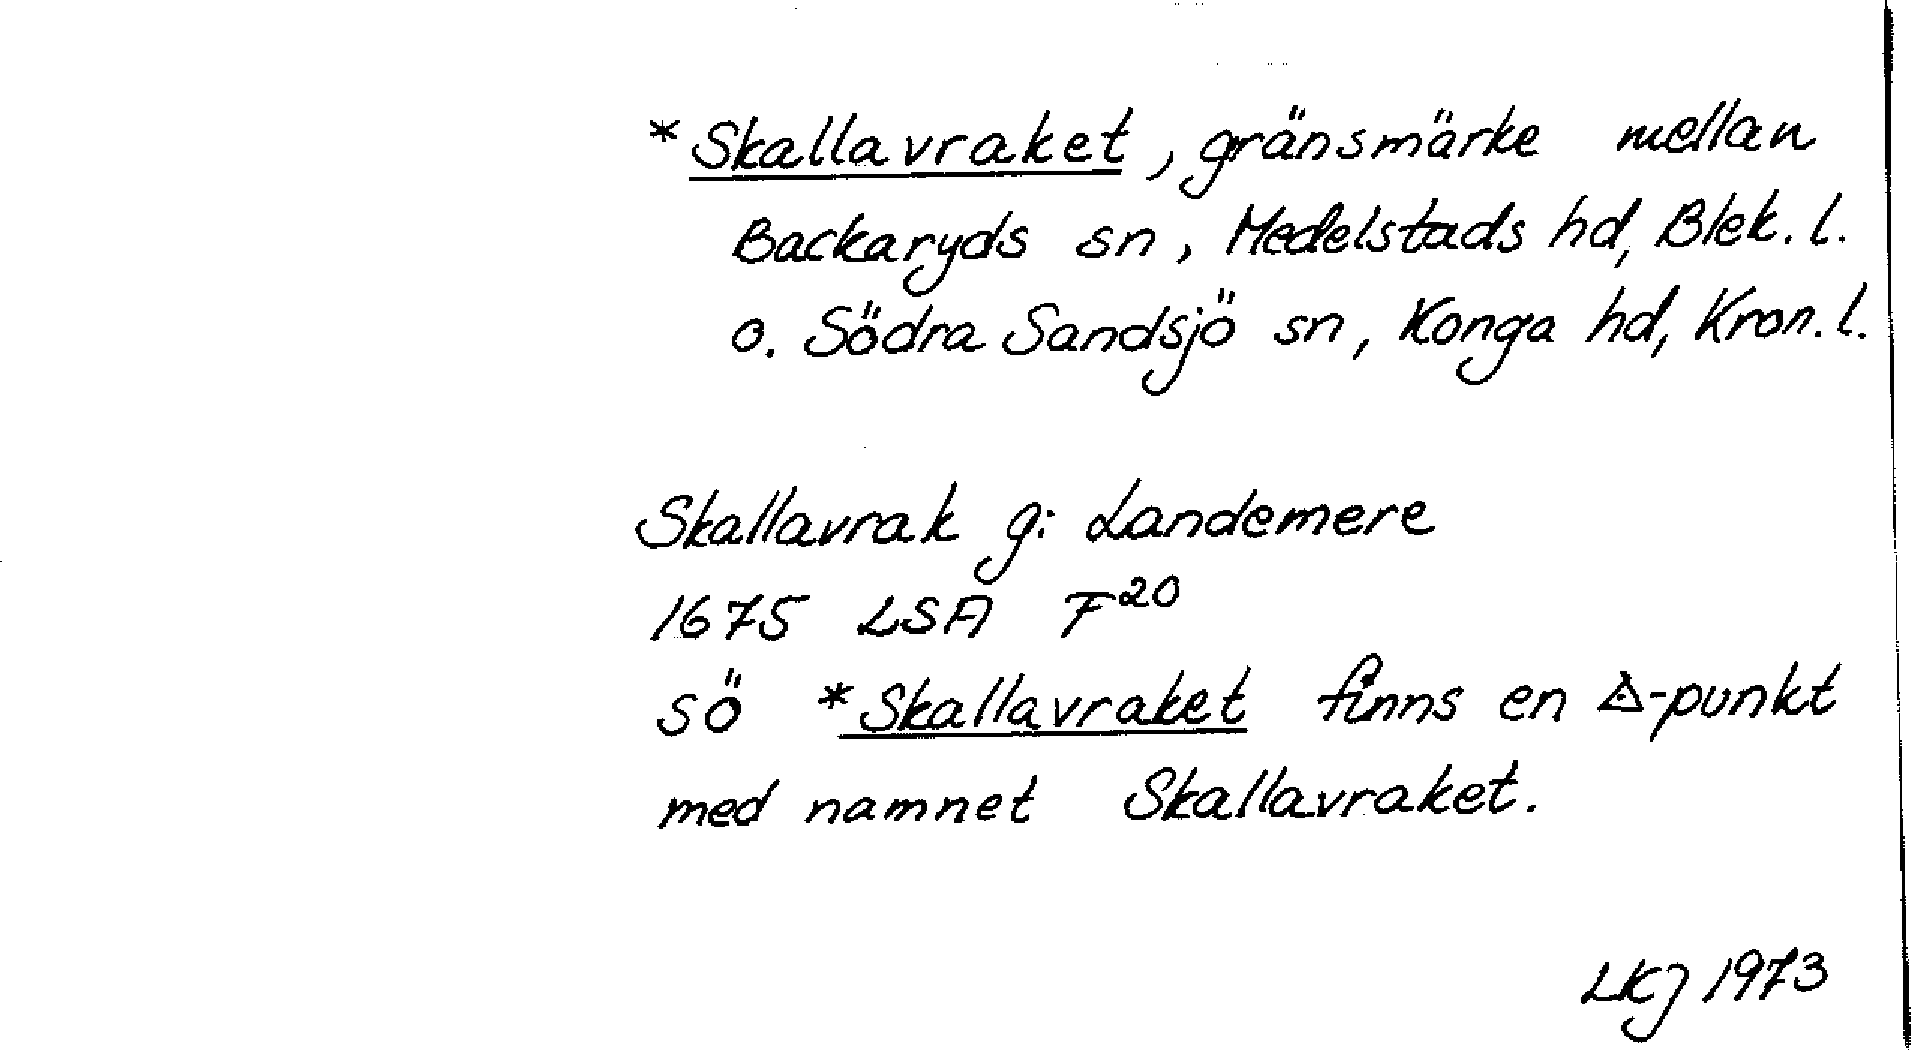 *Skallavraket, gränsmärke mellan
Backaryds sn, Medelstads hd, Blek. l.
o. Södra Sandsjö sn, Konga hd, Kron. l.
Skallavrak g: Landemere
1675 LSA F20
sö *Skallavraket finns en △-punkt
med namnet Skallavraket.
LKJ 1973